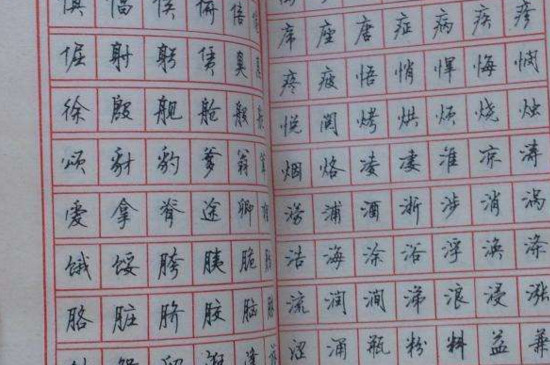 俱 倡 候 俯 倍
倔 射 躬 臭
徐 殷 舰 舱 般
颂 豺 豹 爹 翁
爱 拿 脊 途 卿
饿 馁 胯 胰 脆
胳 脏 脐 胶 脑
席 座 唐 症 病 疾 疹
疼 疲 悟 悄 悍 悔 悯
悦 阅 烤 烘 烦 烧 烛
烟 烙 凌 凄 准 凉 涛
涝 浦 酒 浙 涉 消 涡
浩 海 涂 浴 浮 涣 涤
流 润 涧 涕 浪 浸 涨
涩 涌 瓶 粉 料 益 兼